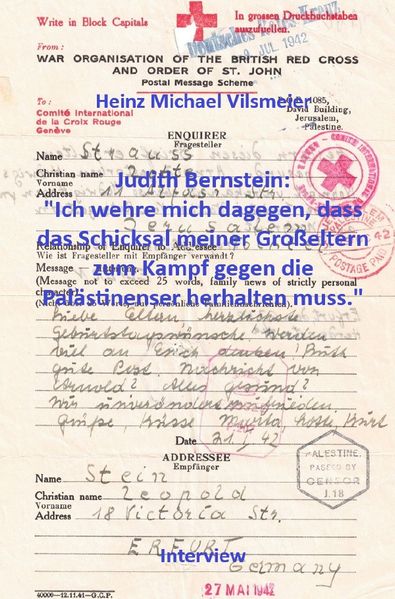 Write in Block Capitals
In grossen Druckbuchstaben
auszufuellen.
Deutsches Rotes Kreuz
JUL 1942
From:
WAR ORGANISATION OF THE BRITISH RED CROSS
AND ORDER OF ST. JOHN
Postal Message Scheme
To:
Comité International
de la Croix Rouge
Genève
1085,
David Building,
Jerusalem,
Palestine.
Heinz Michael Vilsmeier
ENQUIRER
Fragesteller
Name Strauss
Christian name
Vorname
Address 11 Alfasi Str.
Jerusalem
Judith Bernstein:
"Ich wehre mich dagegen, dass
das Schicksal meiner Großeltern
zum Kampf gegen die
Palästinenser herhalten muss."
Relationship of Enquirer to Addressee
Wie ist Fragesteller mit Empfänger verwandt?
Message
(Message not to exceed 25 words, family news of strictly personal
character)
Liebe Eltern, herzlichste
Geburtstagswünsche werden
viel an Euch denken!
gute Post. Nachricht von
Arnold? Alles gesund?
Wir unverändert zufrieden
Grüße, Küsse Lotte, Kurt
Date
ADDRESSEE
Empfänger
Name Stein
Christian name Leopold
Vorname
Address 18 Victoria Str.
ERFURT
Germany
PALESTINE.
PASSED BY
CENSOR
J.18
POSTAGE PAID
Interview
40000—12.11.41—G.C.P.
27 MAI 1942